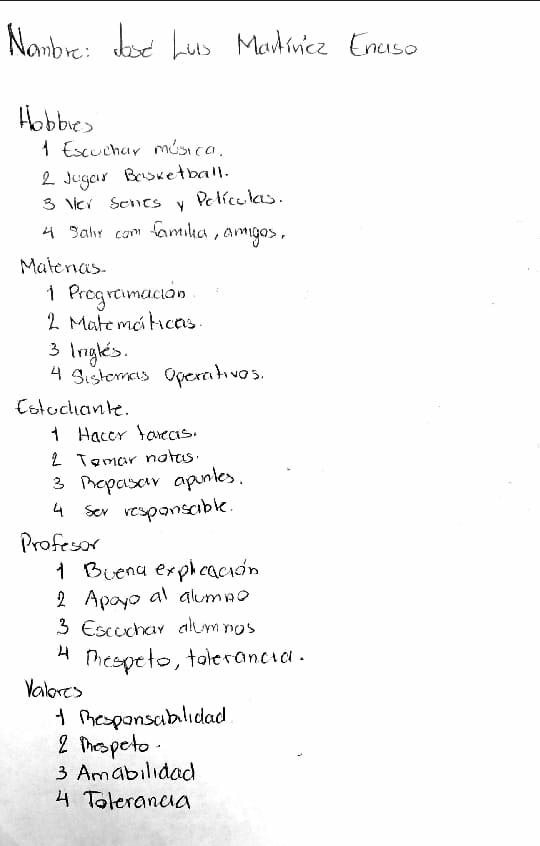 Nombre: José Luis Martínez Enciso
Hobbies
1 Escuchar música.
2 Jugar Basketball.
3 Ver Series y Películas.
4 Salir com familia, amigos,
Materias.
1 Programación
2 Matemáticas.
3 Inglés.
4 Sistemas Operativos.
Estudiante.
1 Hacer tareas.
2 Tomar notas.
3 Repasar apuntes.
4 Ser responsable.
Profesor
1 Buena explicación
2 Apoyo al alumno
3 Escuchar alumnos
4 Respeto, tolerancia.
Valores
1 Responsabilidad
2 Respeto.
3 Amabilidad
4 Tolerancia